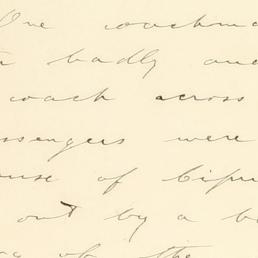 One coachma
badly and
coach across
ssengers were
ouse of Cipri
out by a b
of the